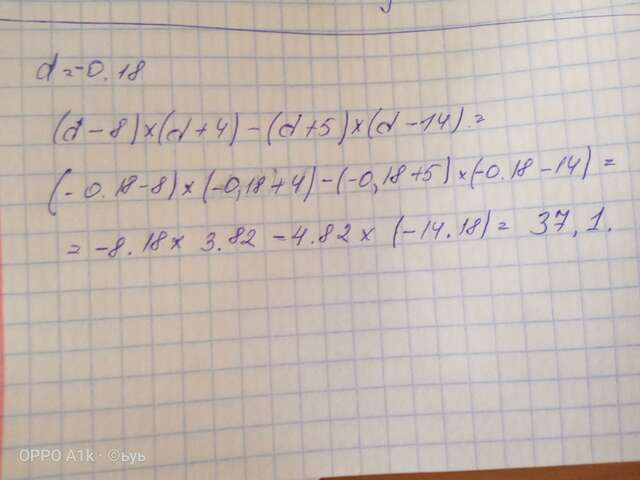 d=-0.18
(d-8)×(d+4)-(d+5)×(d-14).=
(-0.18-8)×(-0,18+4)-(-0,18+5)×(-0.18-14)=
=-8.18×3.82-4.82×(-14.18)=37,1.
OPPO A1k · ©ьуь